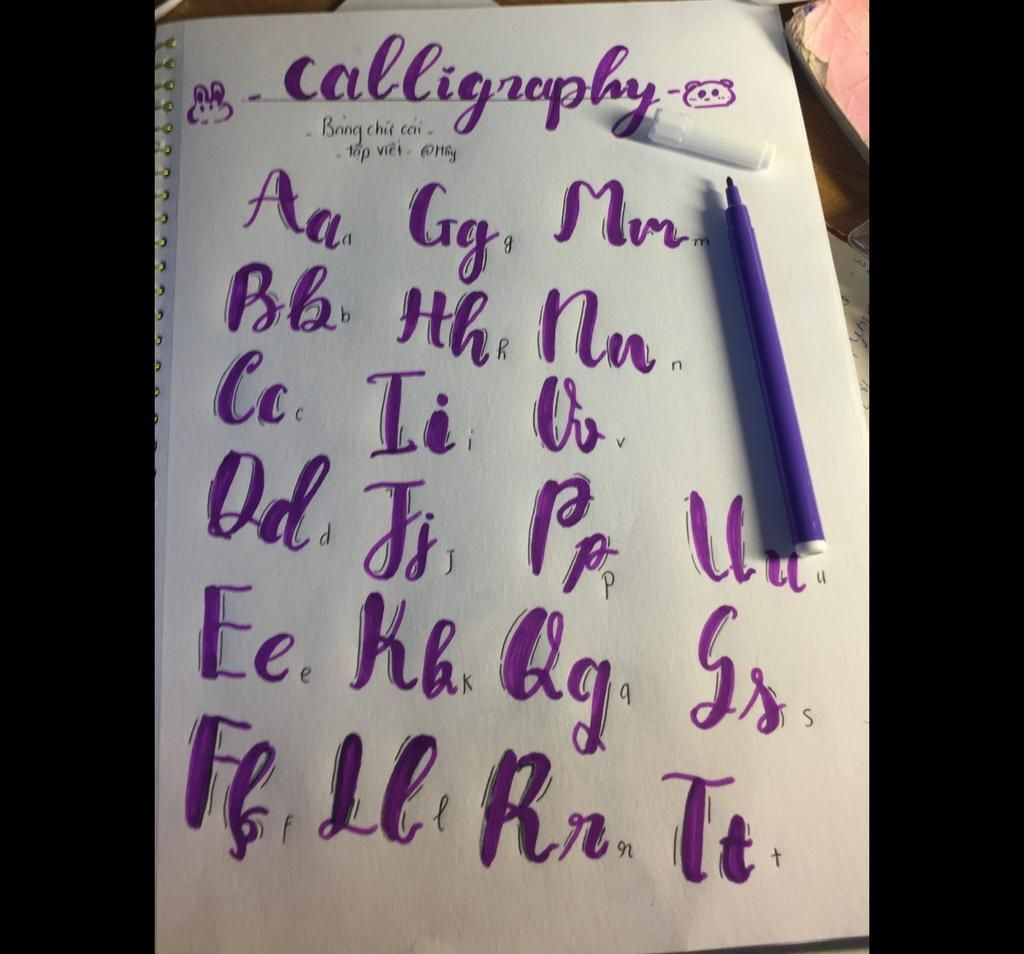 - Calligraphy -
- Bảng chữ cái -
- tập viết - @Mây
Aa a Gg g Mm m
Bb b Hh h Nn n
Cc c Ii i Vv v
Dd d Jj J Pp p Uu u
Ee e Kk k Qq q Ss s
Ff f Ll l Rr r Tt t